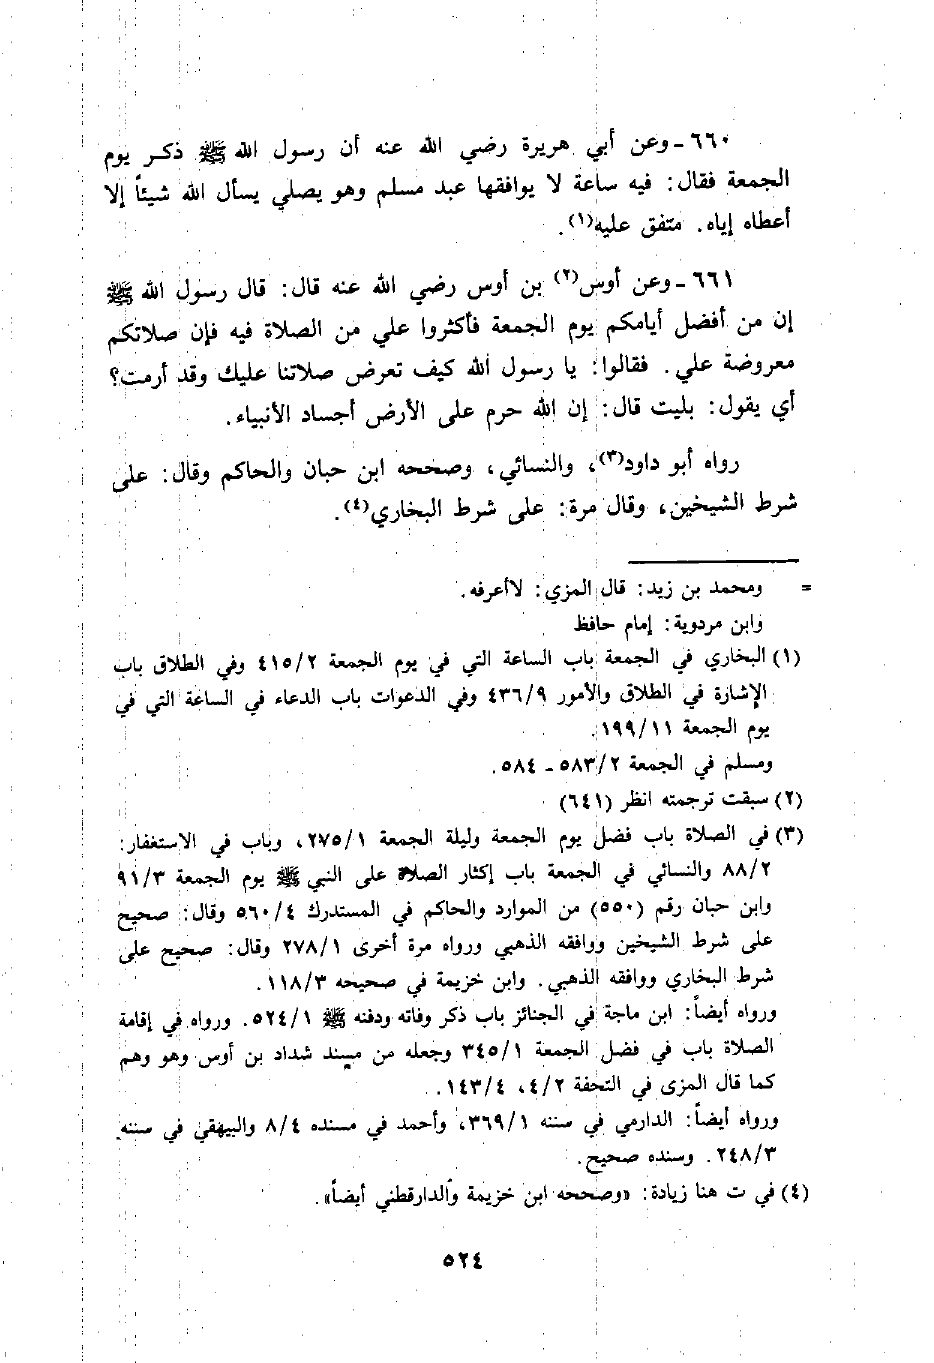 ٦٦٠ - وعن أبي هريرة رضي الله عنه أن رسول الله ﷺ ذكر يوم
الجمعة فقال: فيه ساعة لا يوافقها عبد مسلم وهو يصلي يسأل الله شيئاً إلا
أعطاه إياه. متفق عليه(١).
٦٦١ - وعن أوس(٢) بن أوس رضي الله عنه قال: قال رسول الله ﷺ
إن من أفضل أيامكم يوم الجمعة فأكثروا علي من الصلاة فيه فإن صلاتكم
معروضة علي. فقالوا: يا رسول الله كيف تعرض صلاتنا عليك وقد أرمت؟
أي يقول: بليت قال: إن الله حرم على الأرض أجساد الأنبياء.
رواه أبو داود(٣)، والنسائي، وصححه ابن حبان والحاكم وقال: على
شرط الشيخين، وقال مرة: على شرط البخاري(٤).
= ومحمد بن زيد: قال المزي: لا أعرفه.
وابن مردوية: إمام حافظ
(١) البخاري في الجمعة باب الساعة التي في يوم الجمعة ٤١٥/٢ وفي الطلاق باب
الإشارة في الطلاق والأمور ٤٣٦/٩ وفي الدعوات باب الدعاء في الساعة التي في
يوم الجمعة ١٩٩/١١.
ومسلم في الجمعة ٥٨٣/٢ - ٥٨٤.
(٢) سبقت ترجمته انظر (٦٤١)
(٣) في الصلاة باب فضل يوم الجمعة وليلة الجمعة ٢٧٥/١، وباب في الاستغفار:
٨٨/٢ والنسائي في الجمعة باب إكثار الصلاة على النبي ﷺ يوم الجمعة ٩١/٣
وابن حبان رقم (٥٥٠) من الموارد والحاكم في المستدرك ٥٦٠/٤ وقال: صحيح
على شرط الشيخين ووافقه الذهبي ورواه مرة أخرى ٢٧٨/١ وقال: صحيح على
شرط البخاري ووافقه الذهبي. وابن خزيمة في صحيحه ١١٨/٣.
ورواه أيضاً: ابن ماجة في الجنائز باب ذكر وفاته ودفنه ﷺ ٥٢٤/١. ورواه في إقامة
الصلاة باب في فضل الجمعة ٣٤٥/١ وجعله من مسند شداد بن أوس وهو وهم
كما قال المزى في التحفة ٤/٢، ١٤٣/٤.
ورواه أيضاً: الدارمي في سننه ٣٦٩/١، وأحمد في مسنده ٨/٤ والبيهقي في سننه
٢٤٨/٣. وسنده صحيح.
(٤) في ت هنا زيادة: «وصححه ابن خزيمة والدارقطني أيضاً».
٥٢٤